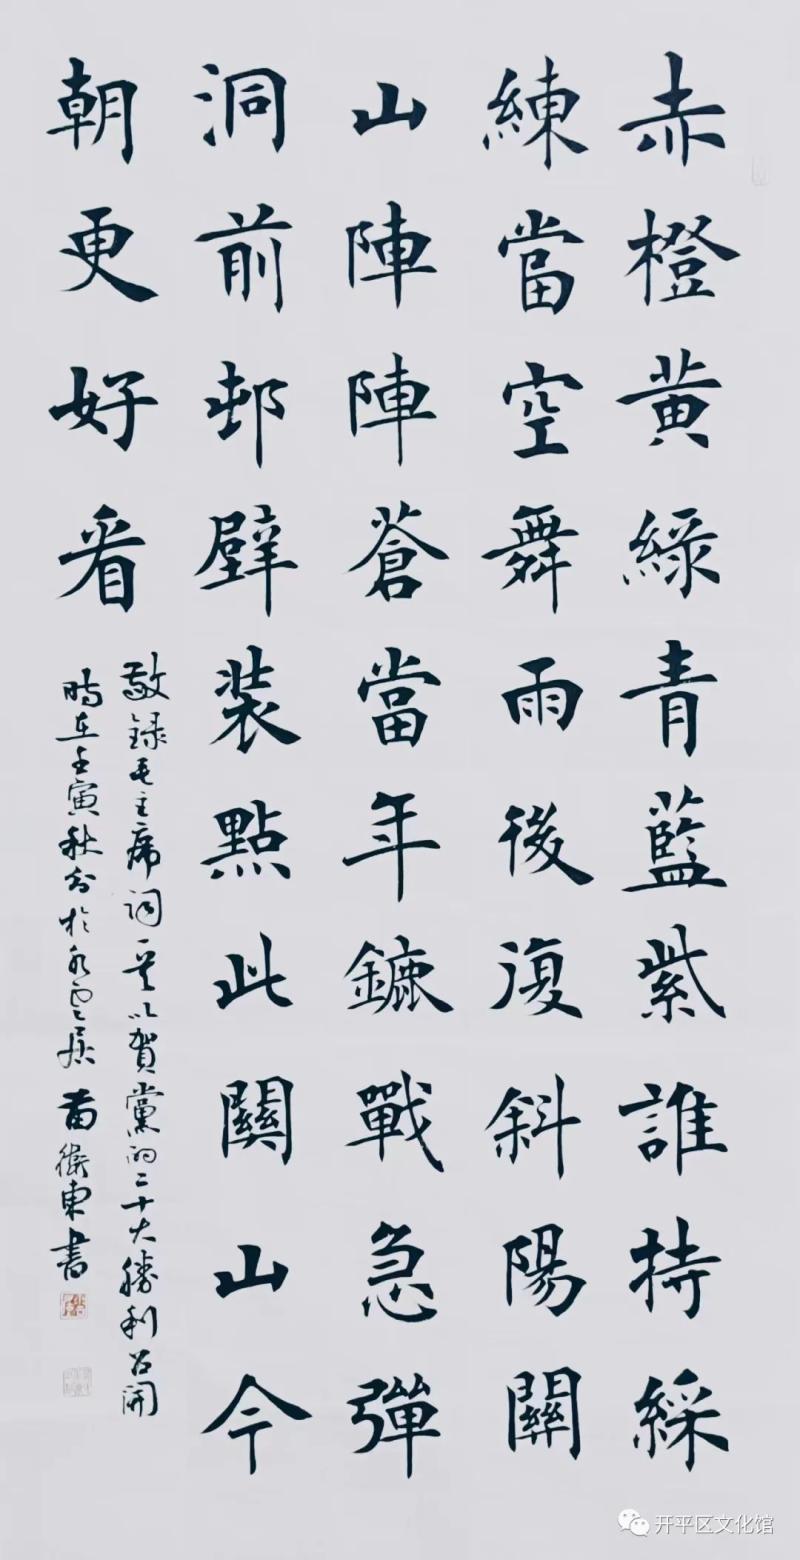 赤橙黄綠青藍紫誰持綵
練當空舞雨後復斜陽關
山陣陣蒼當年鏕戰急彈
洞前邨壁裝點此關山今
朝更好看
敬録毛主席詞一首以賀黨的二十大勝利召開
時在壬寅秋分於居 苗衛東書
开平区文化馆